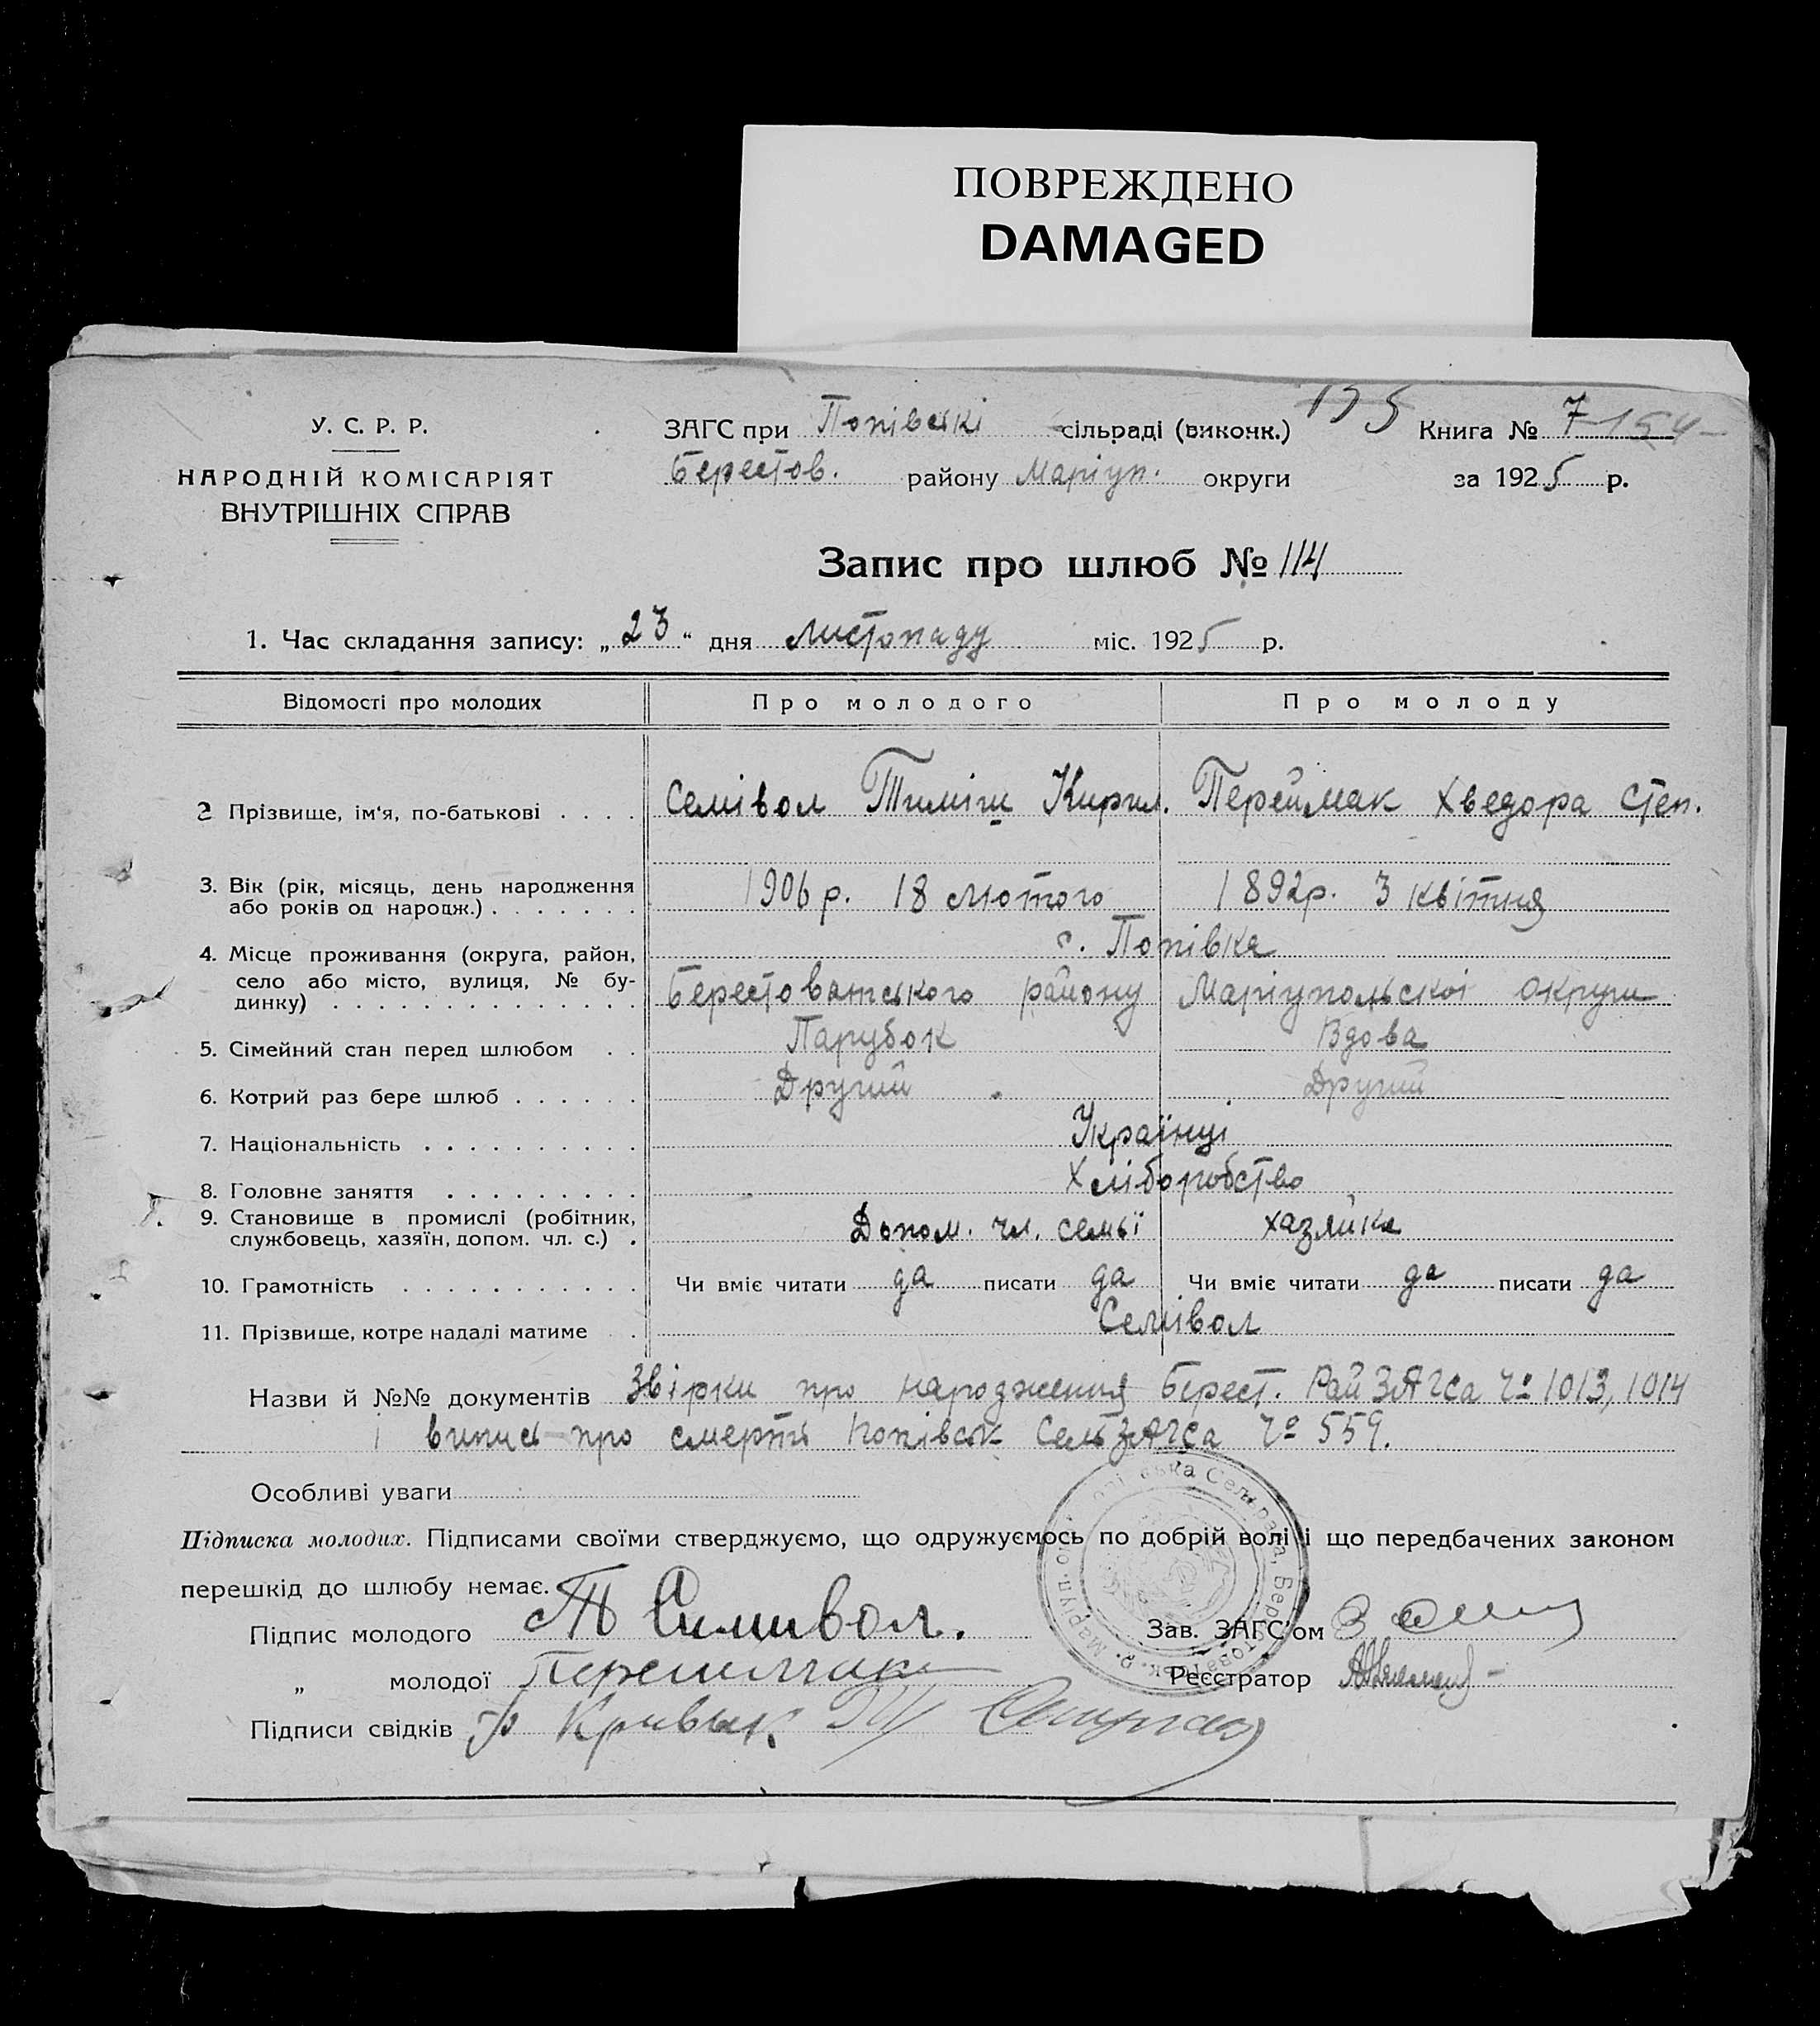 ПОВРЕЖДЕНО
DAMAGED
У. С. Р. Р.
НАРОДНІЙ КОМІСАРІЯТ
ВНУТРІШНІХ СПРАВ
ЗАГС при Попівські сільраді (виконк.)
Книга № 7
Берестов. району Маріуп. округи
за 1925 р.
Запис про шлюб № 114
1. Час складання запису: „23“ дня листопаду міс. 1925 р.
Відомості про молодих Про молодого Про молоду
2 Прізвище, ім‘я, по-батькові . . . . Семівол Тиміш Кирил. Переймак Хведора Степ.
3. Вік (рік, місяць, день народження
або років од народж.) . . . . . . . 1906 р. 18 лютого 1892р. 3 квітня
4. Місце проживання (округа, район, с. Попівка
село або місто, вулиця, № бу-
динку) . . . . . . . . . . . . . . Берестованського району Маріупольскоі округи
5. Сімейний стан перед шлюбом . . Парубок Вдова
6. Котрий раз бере шлюб . . . . . . Другий Другий
7. Національність . . . . . . . . . . Українці
8. Головне заняття . . . . . . . . . Хліборобство
9. Становище в промислі (робітник,
службовець, хазяїн, допом. чл. с.) . Допом. чл. семьї хазяйка
10. Грамотність . . . . . . . . . . . Чи вміє читати да писати да Чи вміє читати да писати да
11. Прізвище, котре надалі матиме . Семівол
Назви й №№ документів Звірки про народження Берест. РайЗАГСа Ч० 1013, 1014
і випись про смерть Попівськ СельЗАГСа Ч० 559.
Особливі уваги
Підписка молодих. Підписами своїми стверджуємо, що одружуємось по добрій волі і що передбачених законом
перешкід до шлюбу немає.
Підпис молодого Т Симивол.
Зав. ЗАГС'ом
„ молодої
Реєстратор
Підписи свідків Кривык